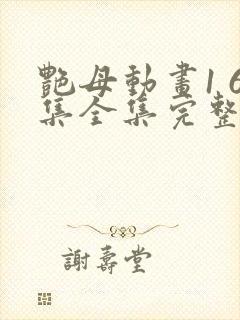 艷母動畫1 6
集全集完整
謝壽堂